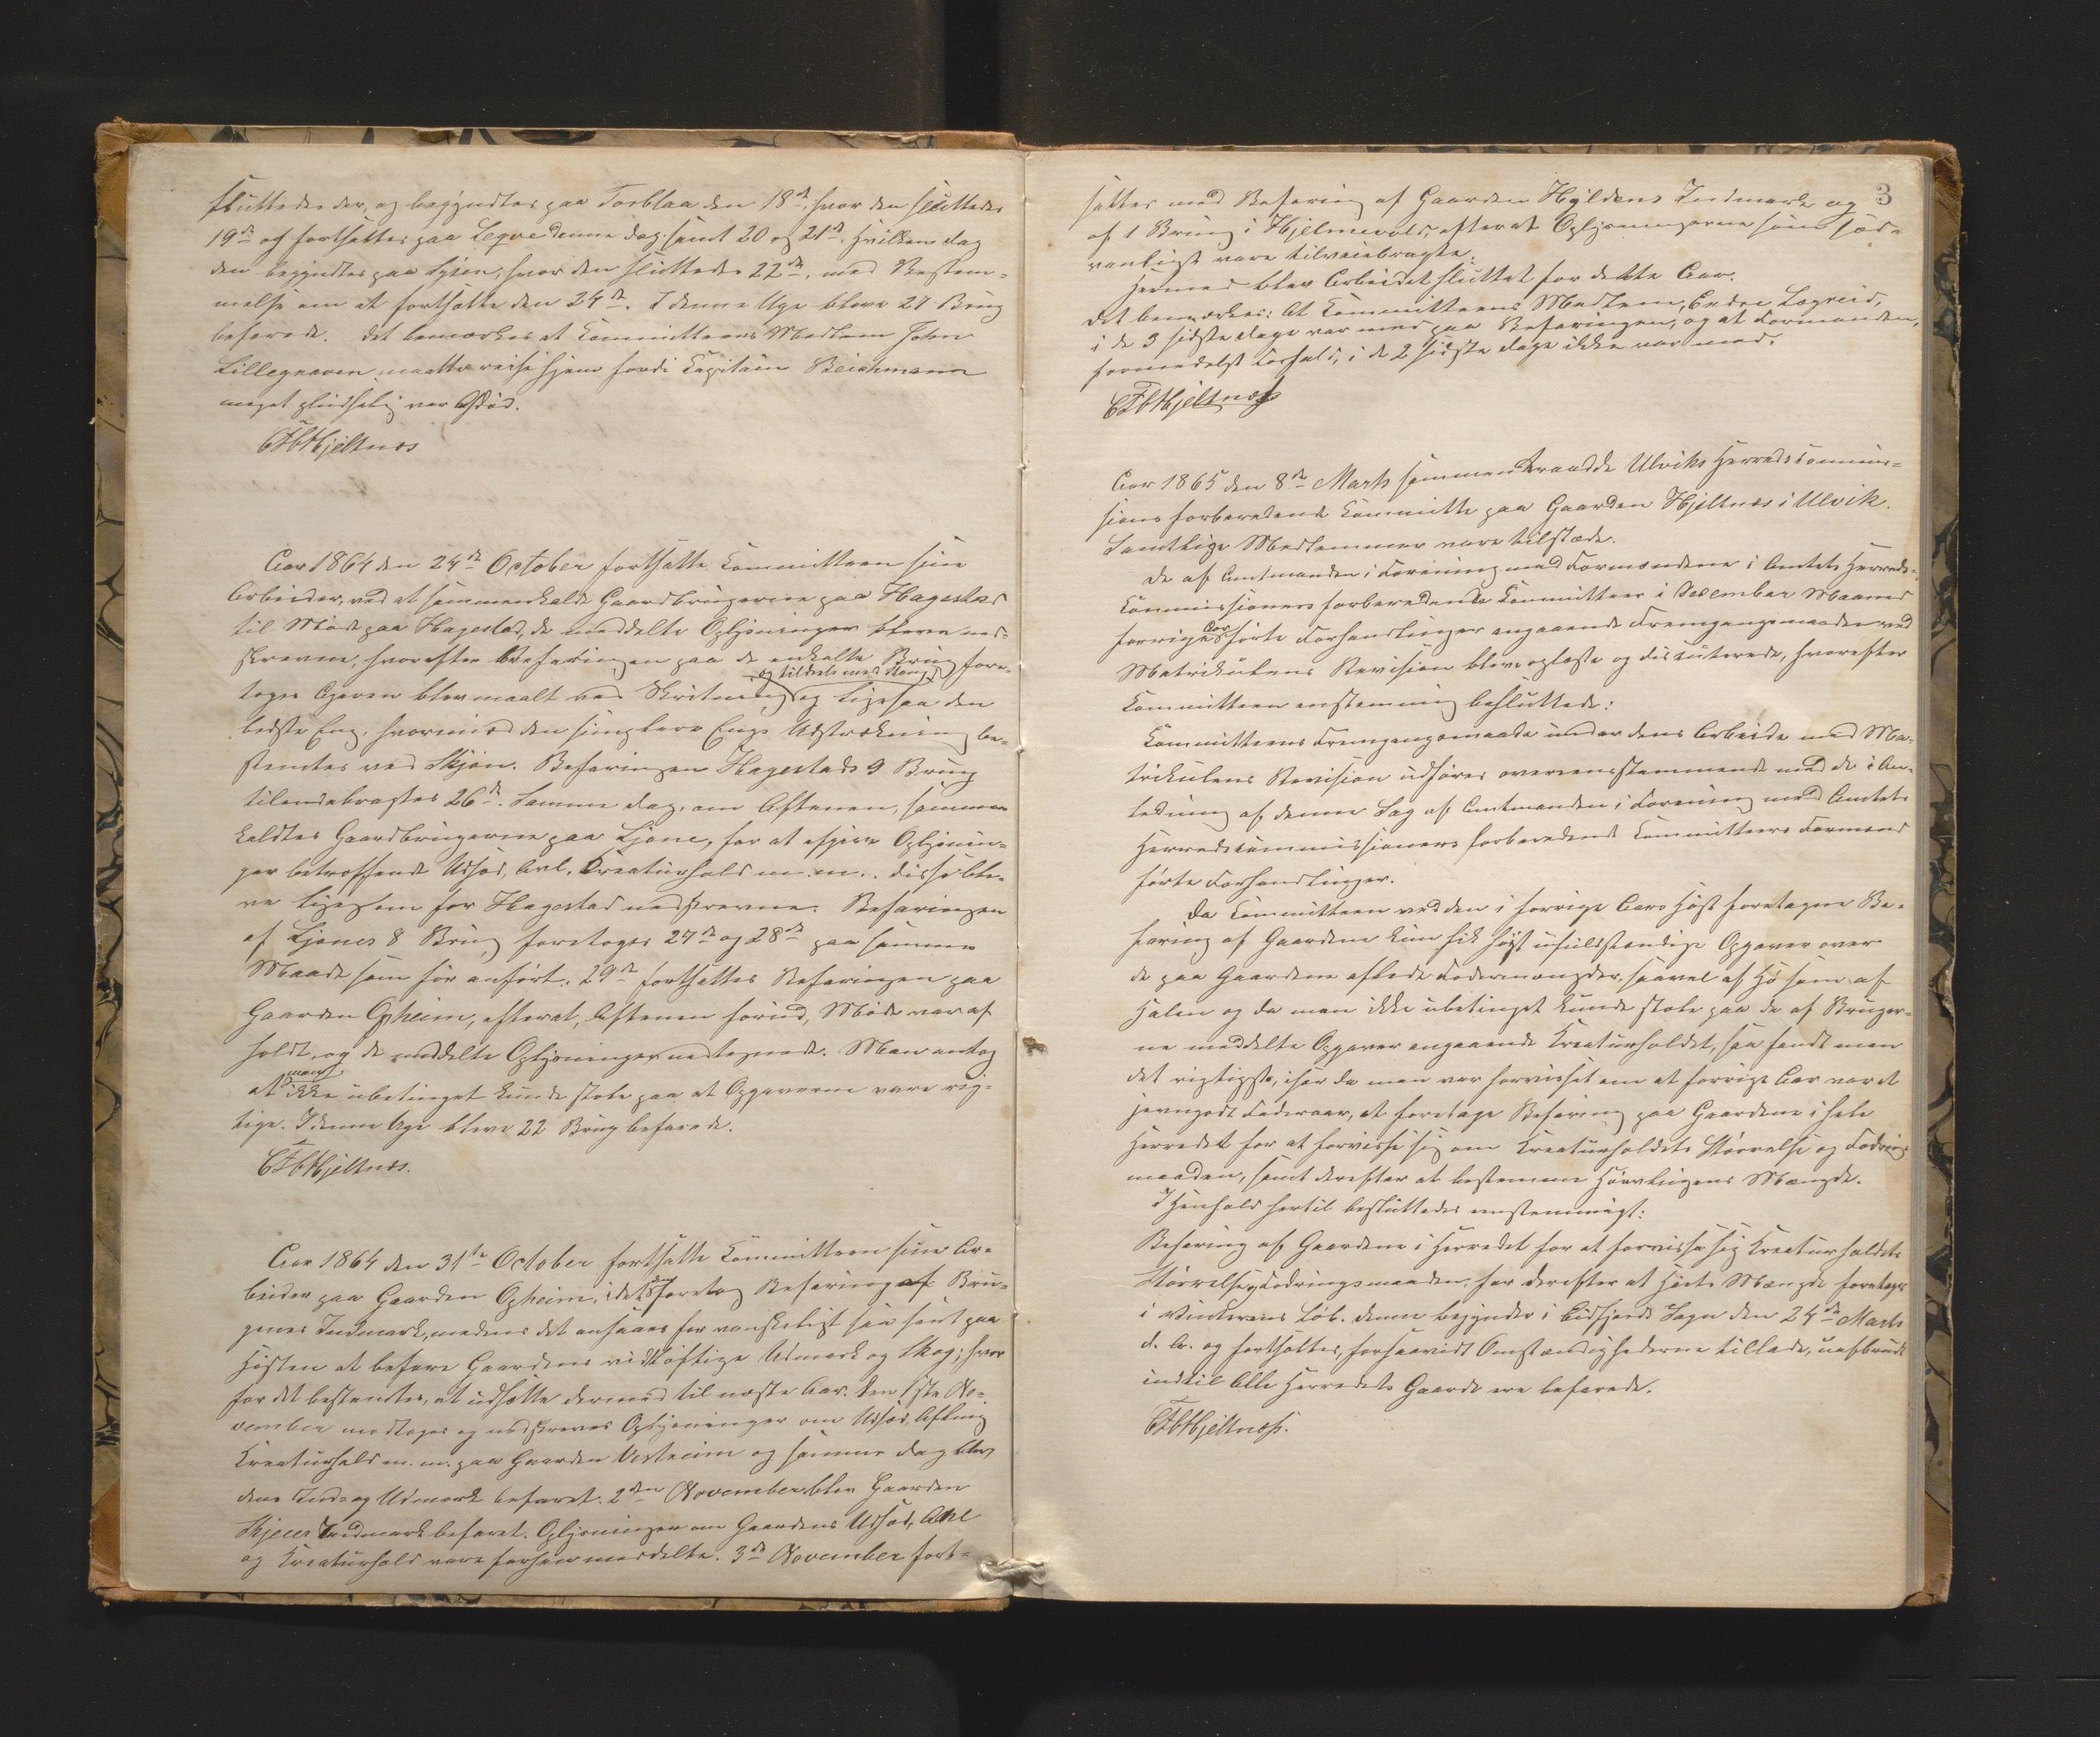 sluttedes der, og begyndtes paa Torblaa den 18de, hvor den sluttedes
19de og fortsattes paa Leqve denne dag samt 20 og 21de. Hvilken dag
den begyndtes paa Syse, hvor den sluttedes 22de, med Bestem=
melse om at fortsætte den 24de. I denne Uge bleve 27 Brug
befarede. Det bemærkes at Committeens Medlem John
Lillegraven maatte reise hjem fordi Capitain Beichmann
meget pludselig var død.
Hjeltnæs
Aar 1864 den 24de October fortsatte Committeen sine
Arbeider, ved at sammenkalde Gaardbrugerne paa Hagestad
til Møde paa Hagestad, de meddelte Oplysninger bleve ned=
skrevne, hvorefter Befaringen paa de enkelte Brug fore=
toges Ageren blev maalt ved Skritning og tildels med Stang og ligesaa den
bedste Eng, hvorimod den simplere Engs Udstrækning be=
stemtes ved Skjøn. Befaringen Hagestads 9 Brug
tilendebragtes 26de. Samme dag, om Aftenen, sammen
kaldtes Gaardbrugerne paa Ljone, for at afgive Oplysnin=
ger betreffende Udsæd, Avl, Creaturhold m.m.. disse ble=
ve ligesom for Hagestad nedskrevne. Befaringen
af Ljones 8 Brug foretoges 27de og 28de paa samme
Maade som før anført. 29de fortsattes Befaringen paa
Gaarden Opheim, efterat, Aftenen forud, Møde var af
holdt, og de meddelte Oplysninger nedtegnede. Man antog
at man ikke ubetinget kunde stole paa at Opgaverne vare rig=
tige. I denne Uge bleve 22 Brug befarede.
Hjeltnæs.
Aar 1864 den 31te October fortsatte Committeen sine Ar=
beider paa Gaarden Opheim, idet den foretog Befaring af Bru=
genes Indmark, medens det ansaaes for vanskeligt saa sent paa
Høsten at befare Gaardens vidtløftige Udmark og Skog; hvor
for det bestemtes, at udsætte dermed til næste Aar. Den 1ste No=
vember modtoges og nedskreves Oplysninger om Udsæd, Avling
Kreaturhold m.m. paa Gaarden Vestreim og samme dag blev
dens Ind= og Udmark befaret. 2den November blev Gaarden
Skjeies Indmark befaret. Oplysninger om Gaardens Udsæd, Avl
og Kreaturhold vare forhen meddelte. 3de November fort=
3
sattes med Befaring af Gaarden Hyldens Indmark og
af 1 Brug i Hjelmevold, efterat Oplysningerne som sæd=
vanligt vare tilveiebragte.
Hermed blev Arbeidet sluttet for dette Aar.
Det bemærkes: At Committeens Medlem, Endre Lægreid,
i de 3 sidste dage var med paa Befaringen, og at Formanden,
formedelst Forfald, i de 2 sidste dage ikke var med.
Hjeltnæs
Aar 1865 den 8de Marts sammentraadde Ulviks Herredscommis=
sions forberedende Committe paa Gaarden Hjeltnæs i Ulvik.
Samtlige Medlemmer vare tilstede.
De af Amtmanden i Forening med Formændene i Amtets Herreds=
Commissioners forberedende Committeer i December Maaned
forrige Aar førte Forhandlinger angaaende Fremgangsmaaden ved
Matrikulens Revision bleve oplæste og discuterede, hvorefter
Committeen enstemmig besluttede:
Committeens Fremgangsmaade under dens Arbeide med Ma=
trikulens Revision udføres overensstemmende med de i An=
ledning af denne Sag af Amtmanden i Forening med Amtets
Herredscommissioners forberedende Committeers Formænd
førte Forhandlinger.
Da Committeen ved den i forrige Aars Høst foretagne Be=
faring af Gaardene kun fik høist ufuldstændige Opgaver over
de paa Gaardene avlede Fodermængder, saavel af Hø som af
Halm og da man ikke ubetinget kunde stole paa de af Bruger=
ne meddelte Opgaver angaaende Kreaturholdet, saa fandt man
det rigtigst, især da man var forvisset om at forrige Aar var et
jevngodt Foderaar, at foretage Befaring paa Gaardene i hele
Herredet for at forvisse sig om Kreaturholdets Størrelse og Fodrings
maaden, samt derefter at bestemme Høavlingens Mængde.
I Henhold hertil besluttedes enstemmigt:
Befaring af Gaardene i Herredet for at forvisse sig Kreaturholdets
Størrelse og Fodringsmaaden, for derefter at Høets Mængde foretages
i Vinterens Løb. Denne begynder i Eidfjords Sogn den 24de Marts
d. A. og fortsættes, forsaavidt Omstændighederne tillade, uafbrudt
indtil Alle Herredets Gaarde ere befarede.
Hjeltnæs.